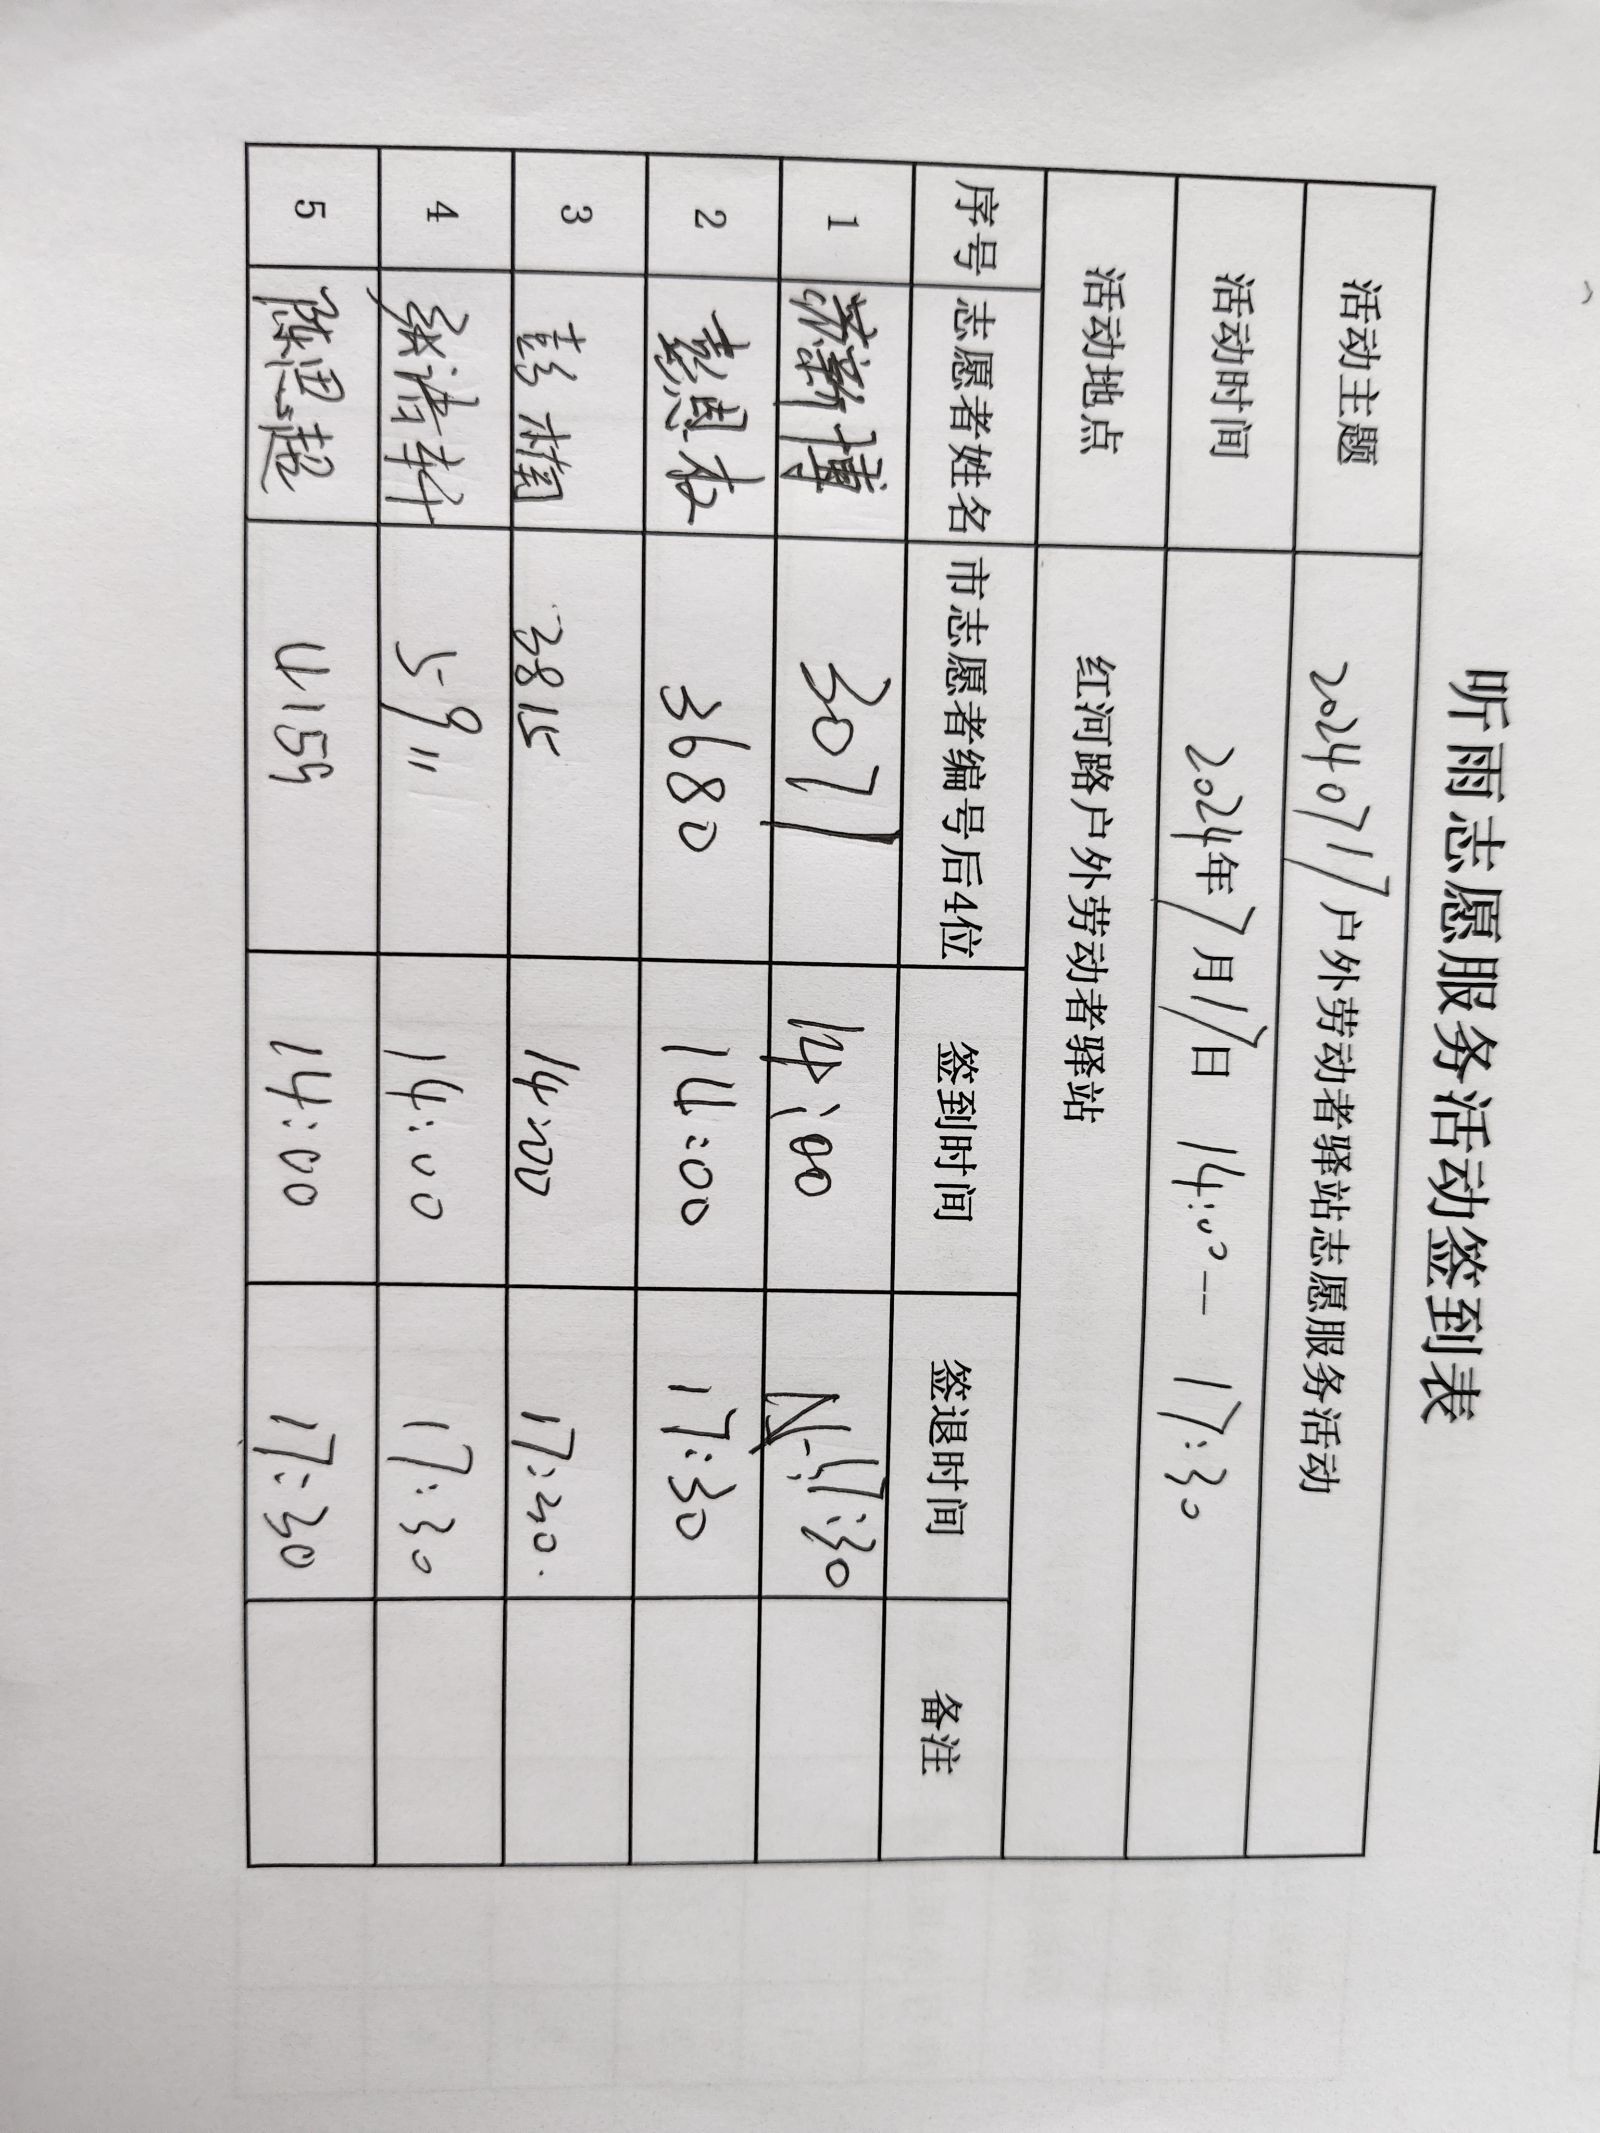 听雨志愿服务活动签到表
活动主题 20240717户外劳动者驿站志愿服务活动
活动时间 2024年7月17日 14:00—17:30
活动地点 红河路户外劳动者驿站
序号 志愿者姓名 市志愿者编号后4位 签到时间 签退时间 备注
1 新博 3071 14:00 17:30
2 彭恩 3680 14:00 17:30
3 彭 3815 14:00 17:30.
4 浩轩 5911 14:00 17:30
5 陈思超 4159 14:00 17:30